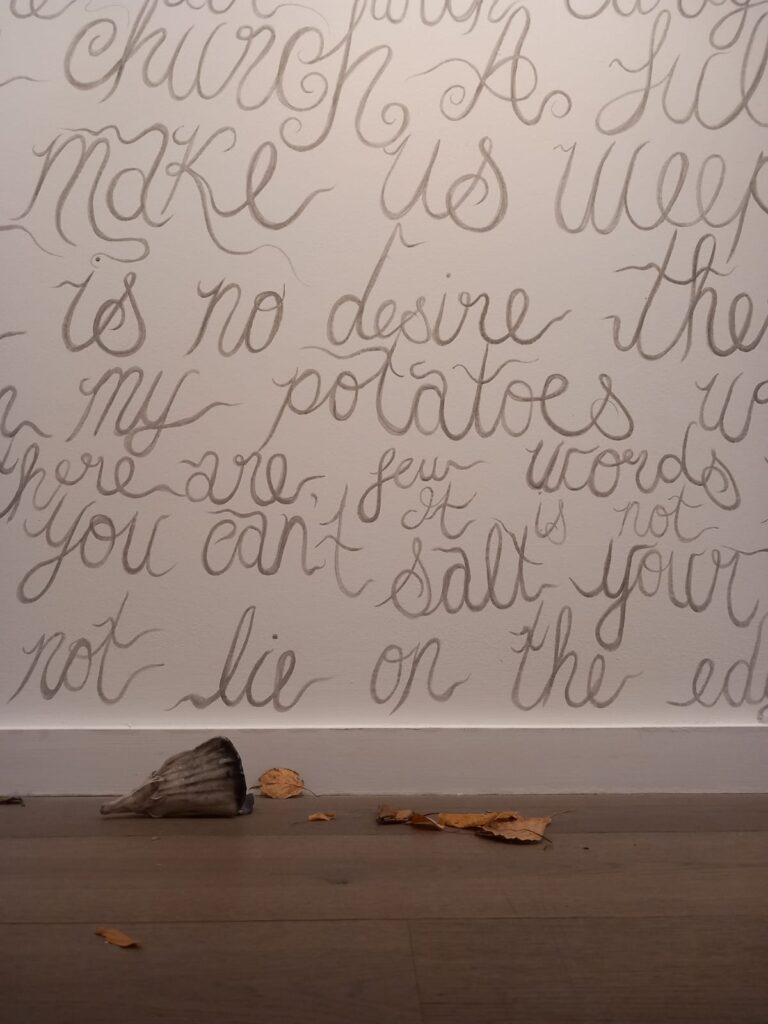 church A
make us weep
is no desire the
my potatoes
here are few words
It is not
you can't salt your
not lie on the